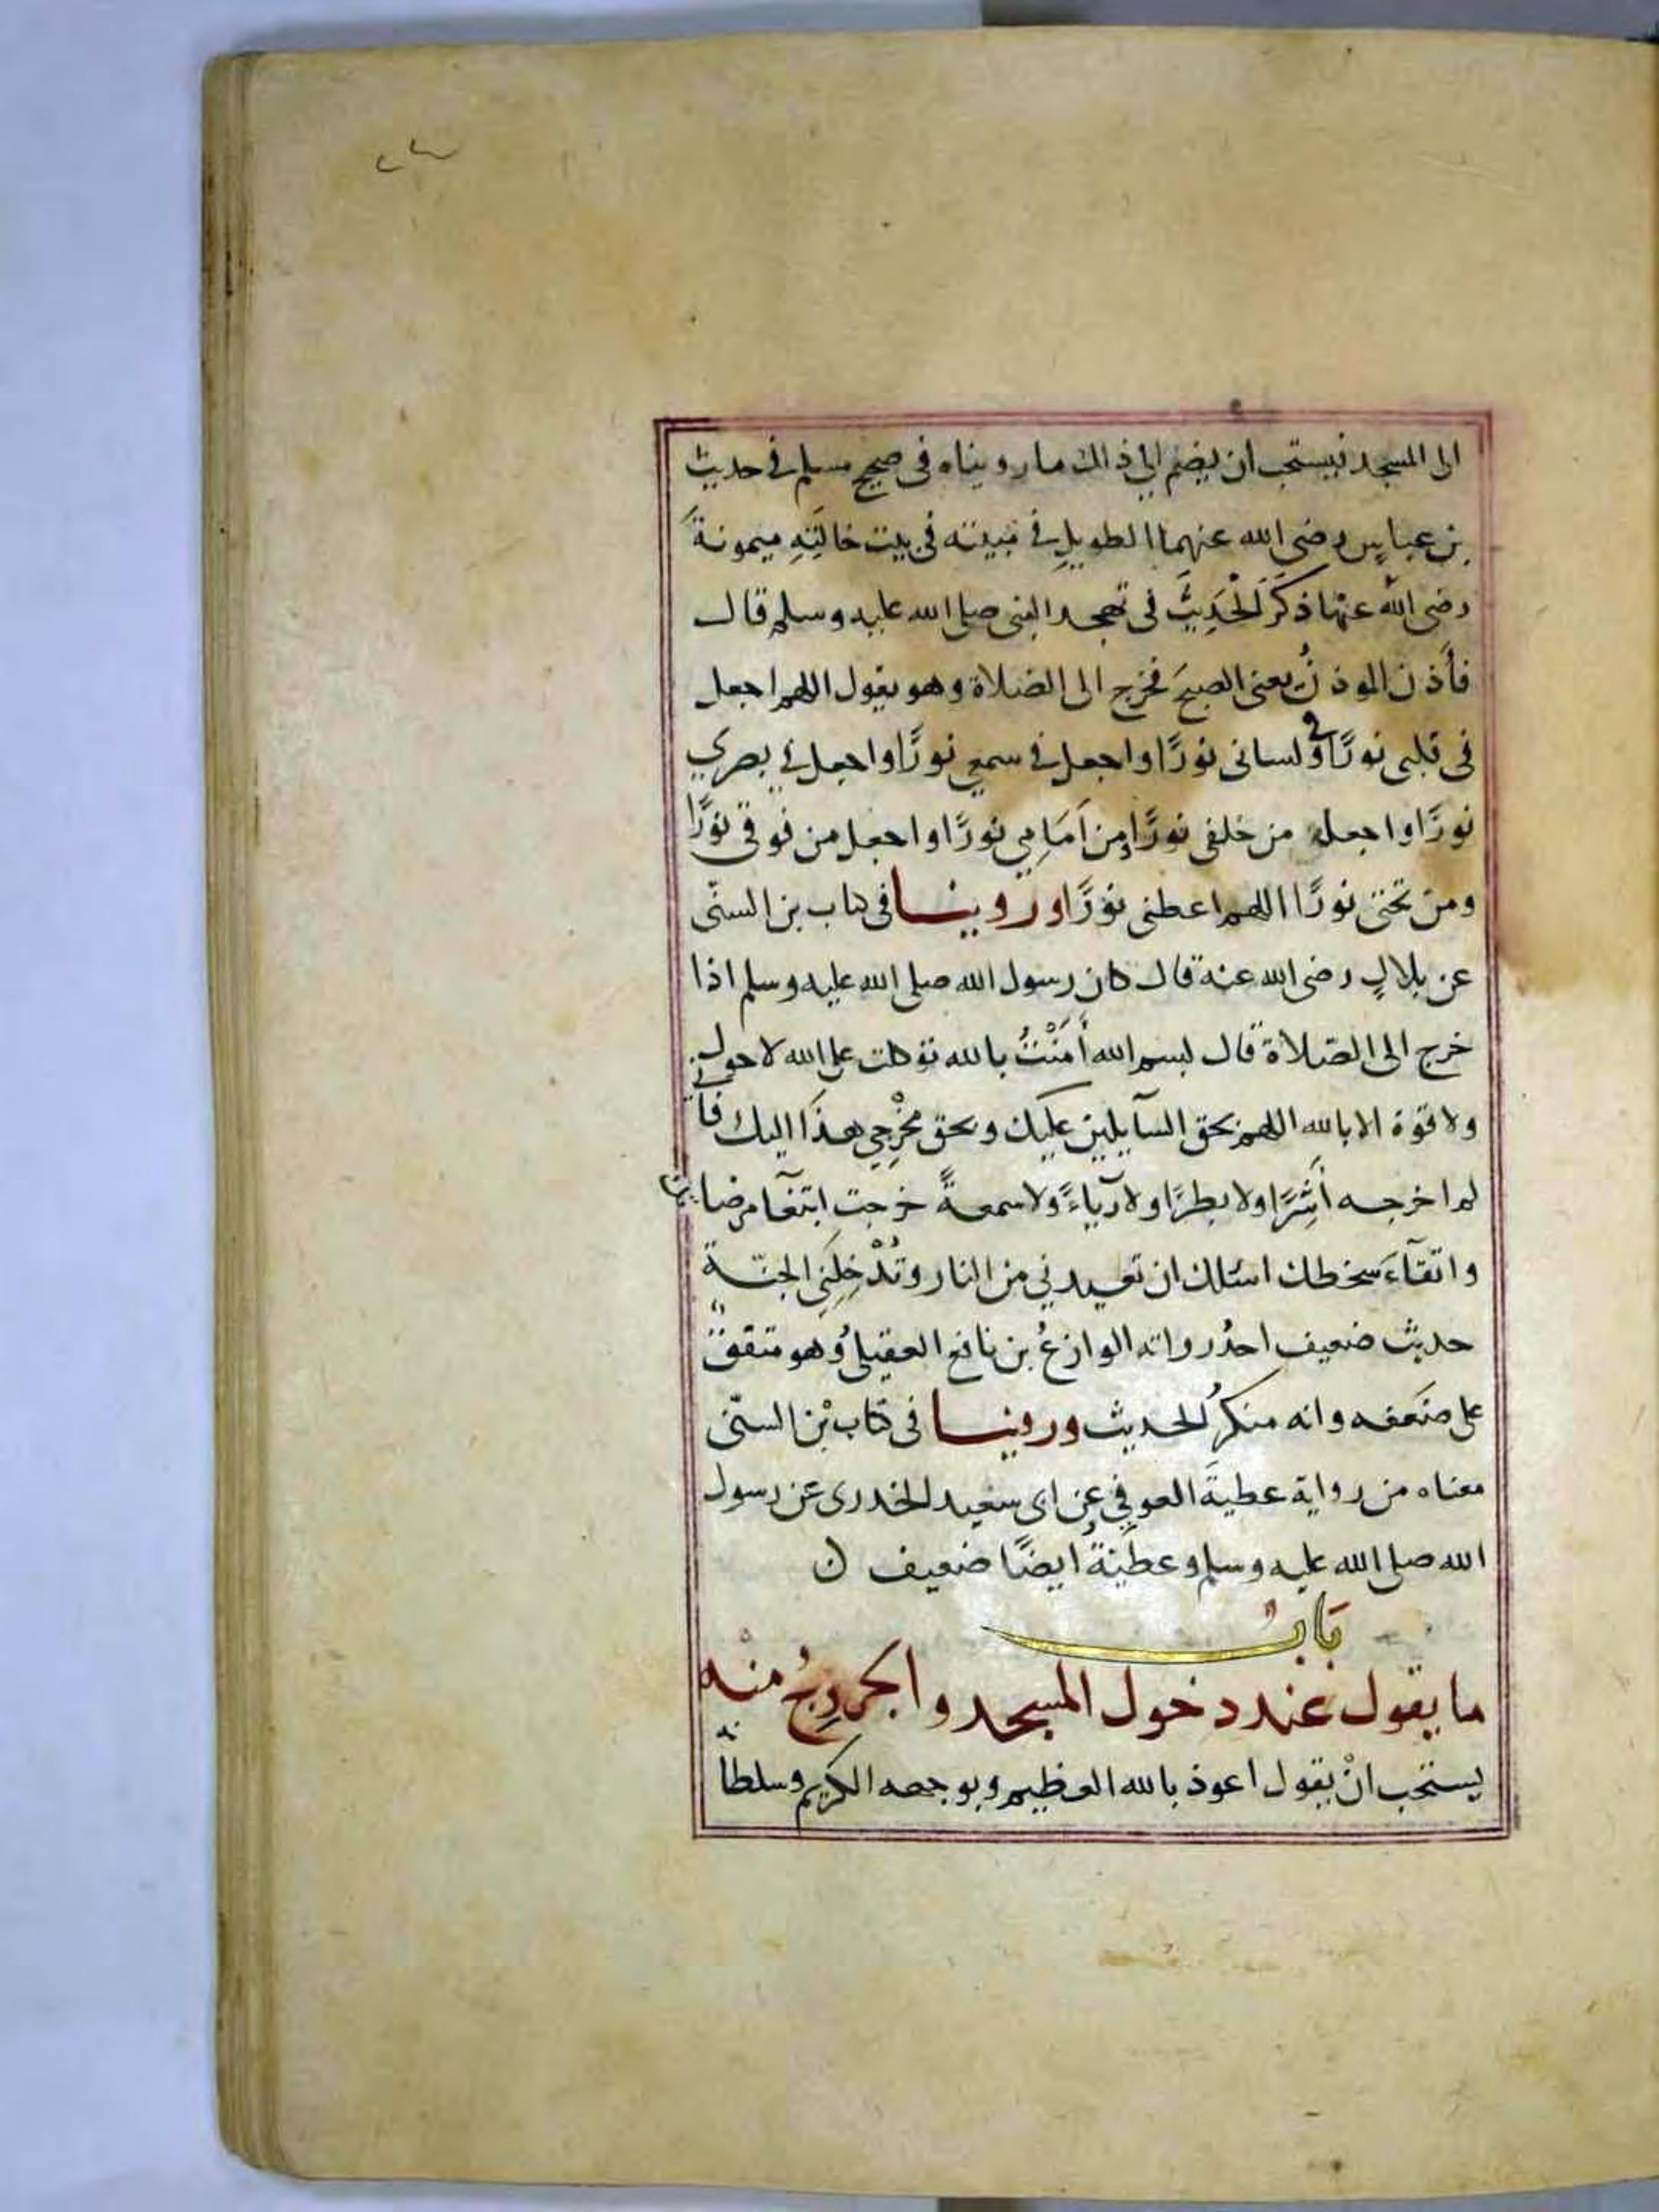 ٢٣
الى المسجد فيستحب ان يضم الى ذالك ما رويناه فى صحيح مسلم فى حديث
بن عباسٍ رضى الله عنهما الطويلِ فى مبيته فى بيت خالَتِهِ ميمونةَ
رضى الله عنها ذكَرَ الْحَدِيثَ فى تهجد النبى صلى الله عليه وسلم قال
فأَذن الموذنُ يعنى الصبحَ فخرج الى الصلاة وهو يقول اللهم اجعل
فى قلبى نورًا وفى لسانى نورًا واجعل فى سمعي نورًا واجعل فى بصري
نورًا واجعل من خلفى نورًا ومن اَمَامِي نورًا واجعل من فوقى نورًا
ومن تحتى نورًا اللهم اعطنى نورًا وروينا فى كتاب بن السنّى
عن بلالٍ رضى الله عنه قال كان رسول الله صلى الله عليه وسلم اذا
خرج الى الصلاة قال بسم الله أَمَنْتُ بالله توكلت على الله لا حول
ولا قوة الا بالله اللهم بحق السآيلين عليك وبحق مخْرجِي هذَا اليك فأني
لم اخرجه أَشَرًا ولا بطرًا ولا رياءً ولا سمعةً خرجت ابتغآ مرضاتك
واتقآءَ سخطك اسئلك ان تعيدني من النار وتُدْخِلَنِى الجنّة
حديث ضعيف احدُ رواته الوازعُ بن نافع العقيلىُ وهو متفقٌ
على ضَعفه وانه منكرُ الحديث وروينا فى كتاب بْن السنّى
معناه من رواية عطيةَ العوفيِ عن ابى سعيد الخدرى عن رسول
الله صلى الله عليه وسلم وعطيةُ ايضًا ضعيف ن
بَابُ
ما يقول عند دخول المسجد والخروجُ منْه
يستحب انْ يقول اعوذ بالله العظيم وبوجهه الكريم وسلطانه